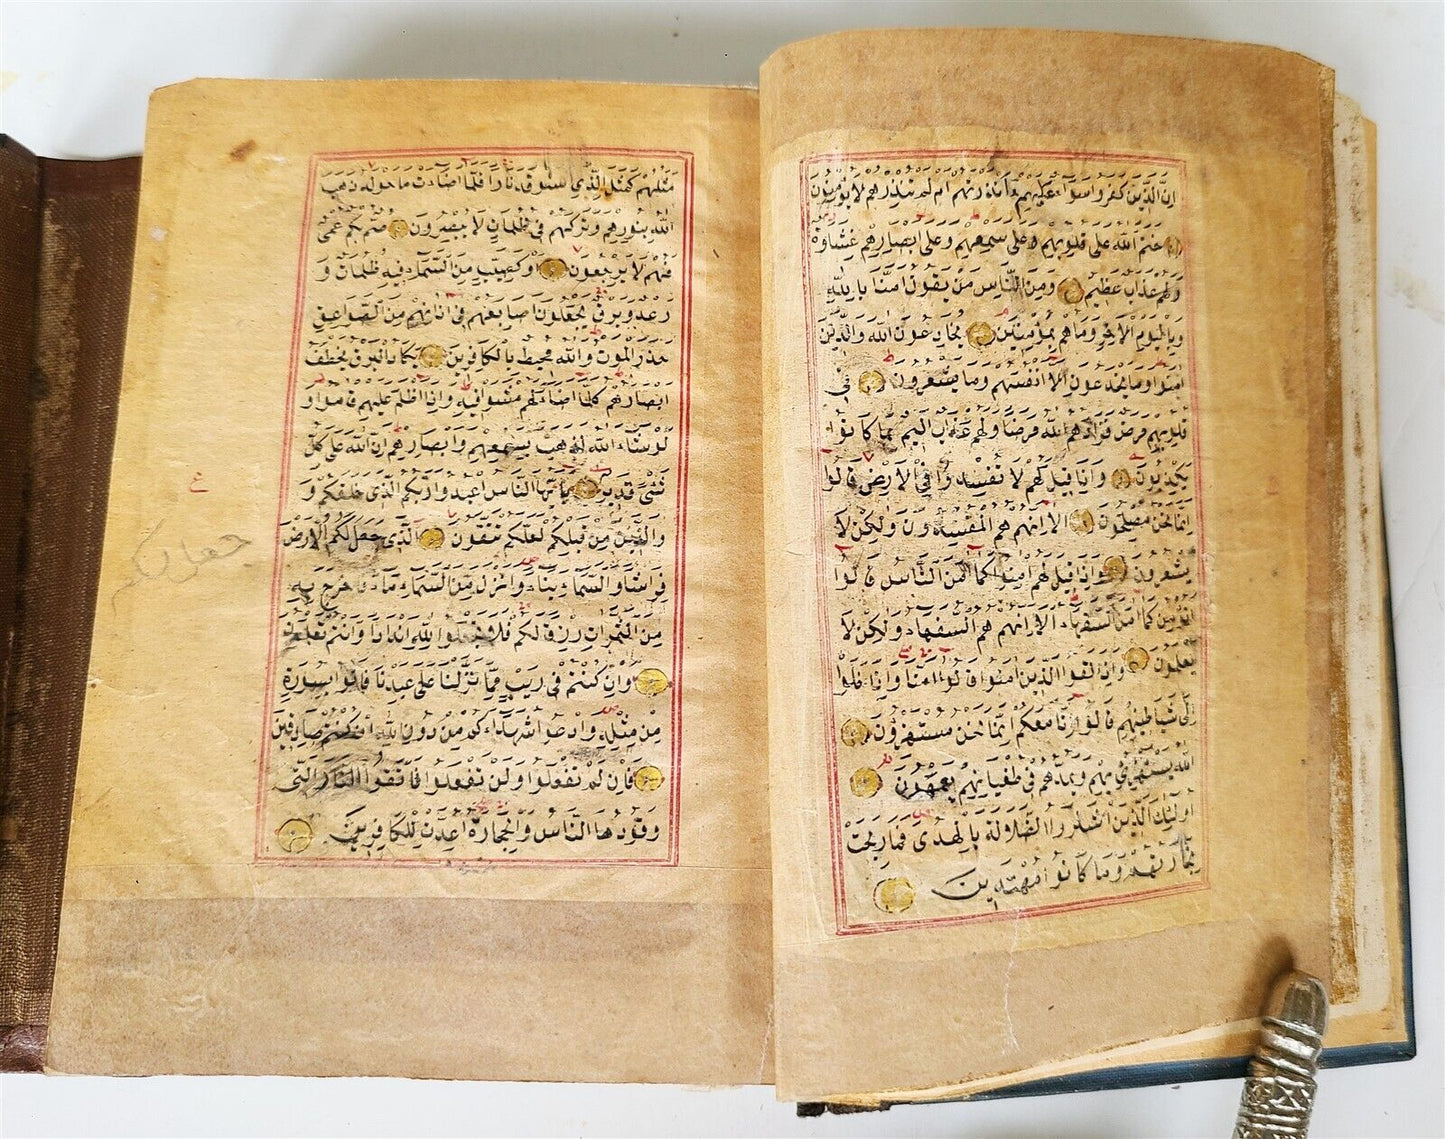 ان الذين كفروا سواء عليهم ءانذرتهم ام لم تنذرهم لا يؤمنون
ختم الله على قلوبهم وعلى سمعهم وعلى ابصارهم غشاوة
ولهم عذاب عظيم ومن الناس من يقول امنا بالله
وباليوم الاخر وما هم بمؤمنين يخادعون الله والذين
امنوا وما يخدعون الا انفسهم وما يشعرون في
قلوبهم مرض فزادهم الله مرضا ولهم عذاب اليم بما كانوا
يكذبون واذا قيل لهم لا تفسدوا في الارض قالوا
انما نحن مصلحون الا انهم هم المفسدون ولكن لا
يشعرون واذا قيل لهم امنوا كما امن الناس قالوا
انؤمن كما امن السفهاء الا انهم هم السفهاء ولكن لا
يعلمون واذا لقوا الذين امنوا قالوا امنا واذا خلوا
الى شياطينهم قالوا انا معكم انما نحن مستهزؤن
الله يستهزئ بهم ويمدهم في طغيانهم يعمهون
اولئك الذين اشتروا الضلالة بالهدى فما ربحت
تجارتهم وما كانوا مهتدين
مثلهم كمثل الذي استوقد نارا فلما اضاءت ما حوله ذهب
الله بنورهم وتركهم في ظلمات لا يبصرون صم بكم عمى
فهم لا يرجعون او كصيب من السماء فيه ظلمات و
رعد وبرق يجعلون اصابعهم في اذانهم من الصواعق
حذر الموت والله محيط بالكافرين يكاد البرق يخطف
ابصارهم كلما اضاء لهم مشوا فيه واذا اظلم عليهم قاموا و
لو شاء الله لذهب بسمعهم وابصارهم ان الله على كل
شئ قدير يا ايها الناس اعبدوا ربكم الذي خلقكم و
والذين من قبلكم لعلكم تتقون الذي جعل لكم الارض
فراشا والسماء بناء وانزل من السماء ماء فاخرج به
من الثمرات رزقا لكم فلا تجعلوا لله اندادا وانتم تعلمون
وان كنتم في ريب مما نزلنا على عبدنا فاتوا بسورة
من مثله وادعوا شهداءكم من دون الله ان كنتم صادقين
فان لم تفعلوا ولن تفعلوا فاتقوا النار التى
وقودها الناس والحجارة اعدت للكافرين
ع
جعل لكم